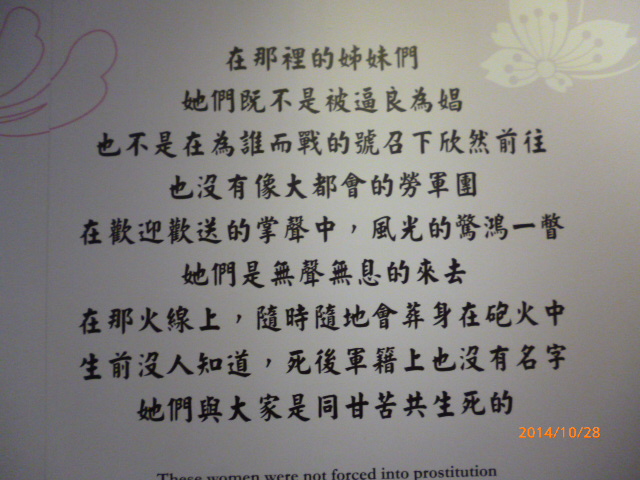 在那裡的姊妹們
她們既不是被逼良為娼
也不是在為誰而戰的號召下欣然前往
也沒有像大都會的勞軍團
在歡迎歡送的掌聲中，風光的驚鴻一瞥
她們是無聲無息的來去
在那火線上，隨時隨地會葬身在砲火中
生前沒人知道，死後軍籍上也沒有名字
她們與大家是同甘苦共生死的
2014/10/28
These women were not forced into prostitution